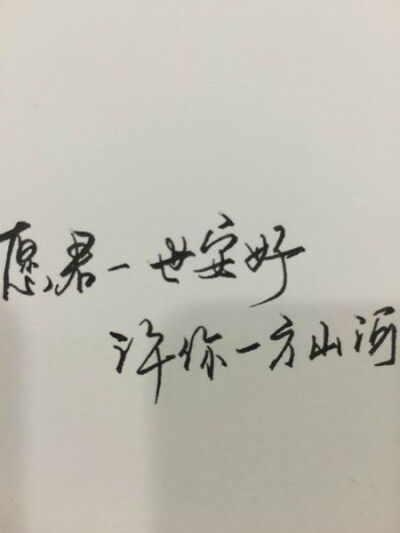 愿君一世安好
许你一方山河